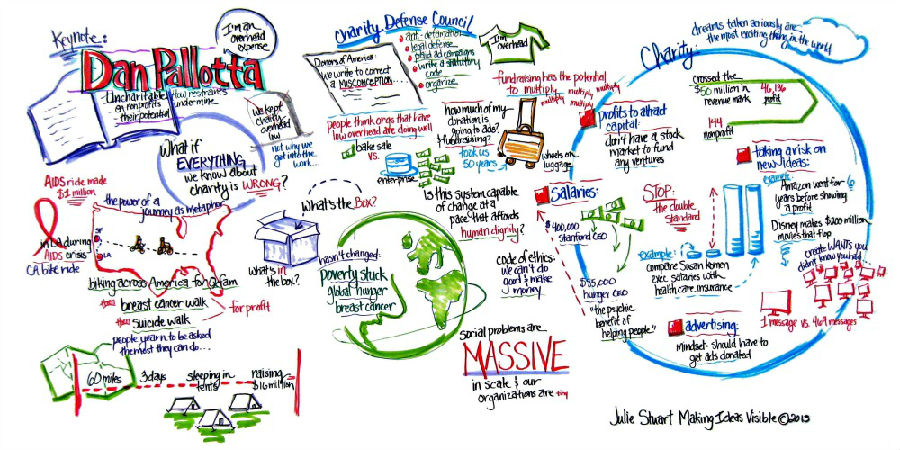 Keynote:
Dan Pallotta
I'm an
overhead
expense
Uncharitable: How restraints
on nonprofits undermine
their potential
We kept
charity
overhead
low
not why we
got into the
work...
What if
EVERYTHING
we know about
charity is WRONG?
AIDS ride made
$1 million
the power of a
journey as metaphor
in LA during
AIDS crisis
CA bike ride
SF
LA
biking across America for Oxfam
then breast cancer walk
then suicide walk
for profit
people yearn to be asked
the most they can do...
60 miles
3 days
sleeping in
tents
raising
$16 million
What's the Box?
What's in
the box?
Charity Defense Council
Donors of America:
we write to correct
a MISCONCEPTION...
anti-defamation
legal defense
paid ad campaigns
write a statutory
code
organize
I'm
overhead
fundraising has the potential
to multiply multiply multiply multiply
multiply
people think orgs that have
low overhead are doing well
bake sale
vs.
enterprise
how much of my
donation is
going to ads?
fundraising?
took us
50 years
wheels on
luggage
Is this system capable
of change at a
pace that affords
human dignity?
hasn't changed:
poverty stuck
global hunger
breast cancer
code of ethics:
we can't do
good & make
money
social problems are
MASSIVE
in scale & our
organizations are tiny
Charity:
dreams taken seriously are
the most exciting thing in the world
crossed the
$50 million
revenue mark
46,136
profit
144
nonprofit
profits to attract
capital:
don't have a stock
market to fund
any ventures
taking a risk on
new ideas:
example:
Amazon went for 6
years before showing
a profit
Disney makes $200 million
movies that flop
create WANTS you
didn't know you had
Salaries:
$400,000
Stanford CEO
$85,000
hunger CEO
"the psychic
benefit of
helping people"
STOP:
the double
standard
example:
compare Susan Komen
exec salaries with
health care, insurance
1 message vs. 469 messages
advertising:
mindset: should have to
get ads donated
Julie Stuart Making Ideas Visible ©2013